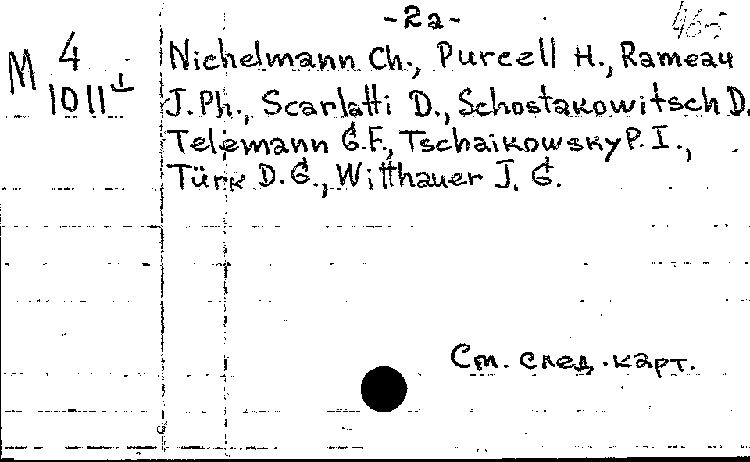 -2a-
M 4
1011
Nichelmann Ch., Purcell H., Rameau
J.Ph., Scarlatti D., Schostakowitsch D.
Telemann G.F., Tschaikowsky P.I.,
Türk D.G., Witthauer J.G.
См. след. карт.